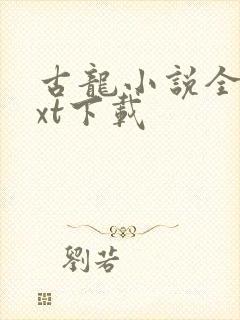 古龍小説全
xt下載
劉若